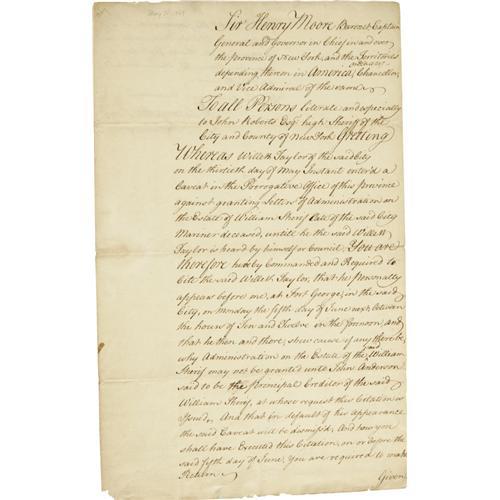 Sir Henry Moore Baronet Captain
General and Governor in Chief in and over
the province of New York, and the Territories
depending thereon in America, Chancellor,
and Vice Admiral of the same
To all Persons before and especially
to John Roberts Esqr. high Sheriff of the
City and County of New York Greeting
Whereas Willett Taylor of the said City
on the thirtieth day of May Instant enterd a
Caveat in the Perrogative Office of this province
against granting Letters of Administration on
the Estate of William Sherif late of the said City
Mariner deceased, untill he the said Willett
Taylor is heard by himself or Council, You are
therefore hereby Commanded and Required to
Cite the said Willett Taylor, that he personally
appear before me, at Fort George, in the said
City, on Monday the fifth day of June next, between
the hours of Ten and Twelve in the forenoon, and
that he then and there, shew cause if any there be,
why Administration on the Estate of the said William
Sherif may not be granted unto John Anderson
said to be the principal Creditor of the said
William Sherif, at whose request this Citation is
Issued, And that in default of his appearance
the said Caveat will be dismissd, And how you
shall have Executed this Citation, on or before the
said fifth day of June, You are required to make
Return
Given